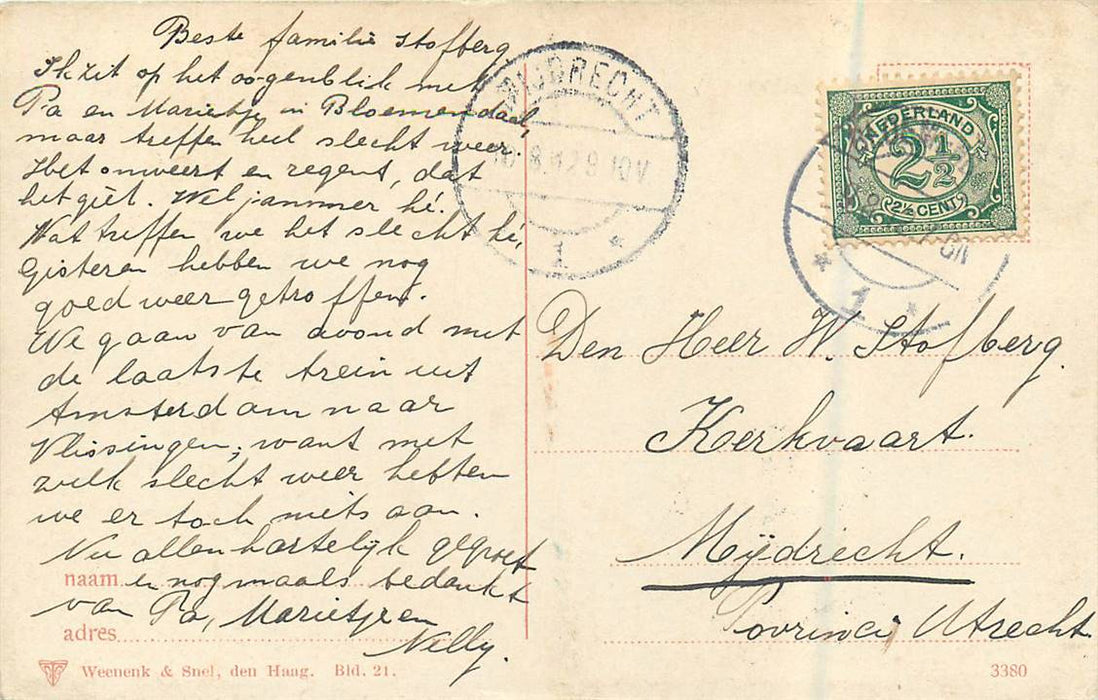 Beste familie Stofberg
Ik zit op het oogenblik met
Pa en Marietje in Bloemendaal,
maar treffen heel slecht weer.
Het onweert en regent, dat
het giet. Wel jammer hé.
Wat treffen we het slecht hé,
Gisteren hebben we nog
goed weer getroffen.
We gaan van avond met
de laatste trein uit
Amsterdam naar
Vlissingen, want met
zulk slecht weer hebben
we er toch niets aan.
Nu allen hartelijk gegroet
en nogmaals bedankt
van Pa, Marietje en
Nelly.
naam
adres
Weenenk & Snel, den Haag. Bld. 21.
MIJDRECHT
9 10V
1
NEDERLAND
2½
2½ CENT
1
Den Heer W. Stofberg.
Kerkvaart.
Mijdrecht.
Povrincie Utrecht.
3380